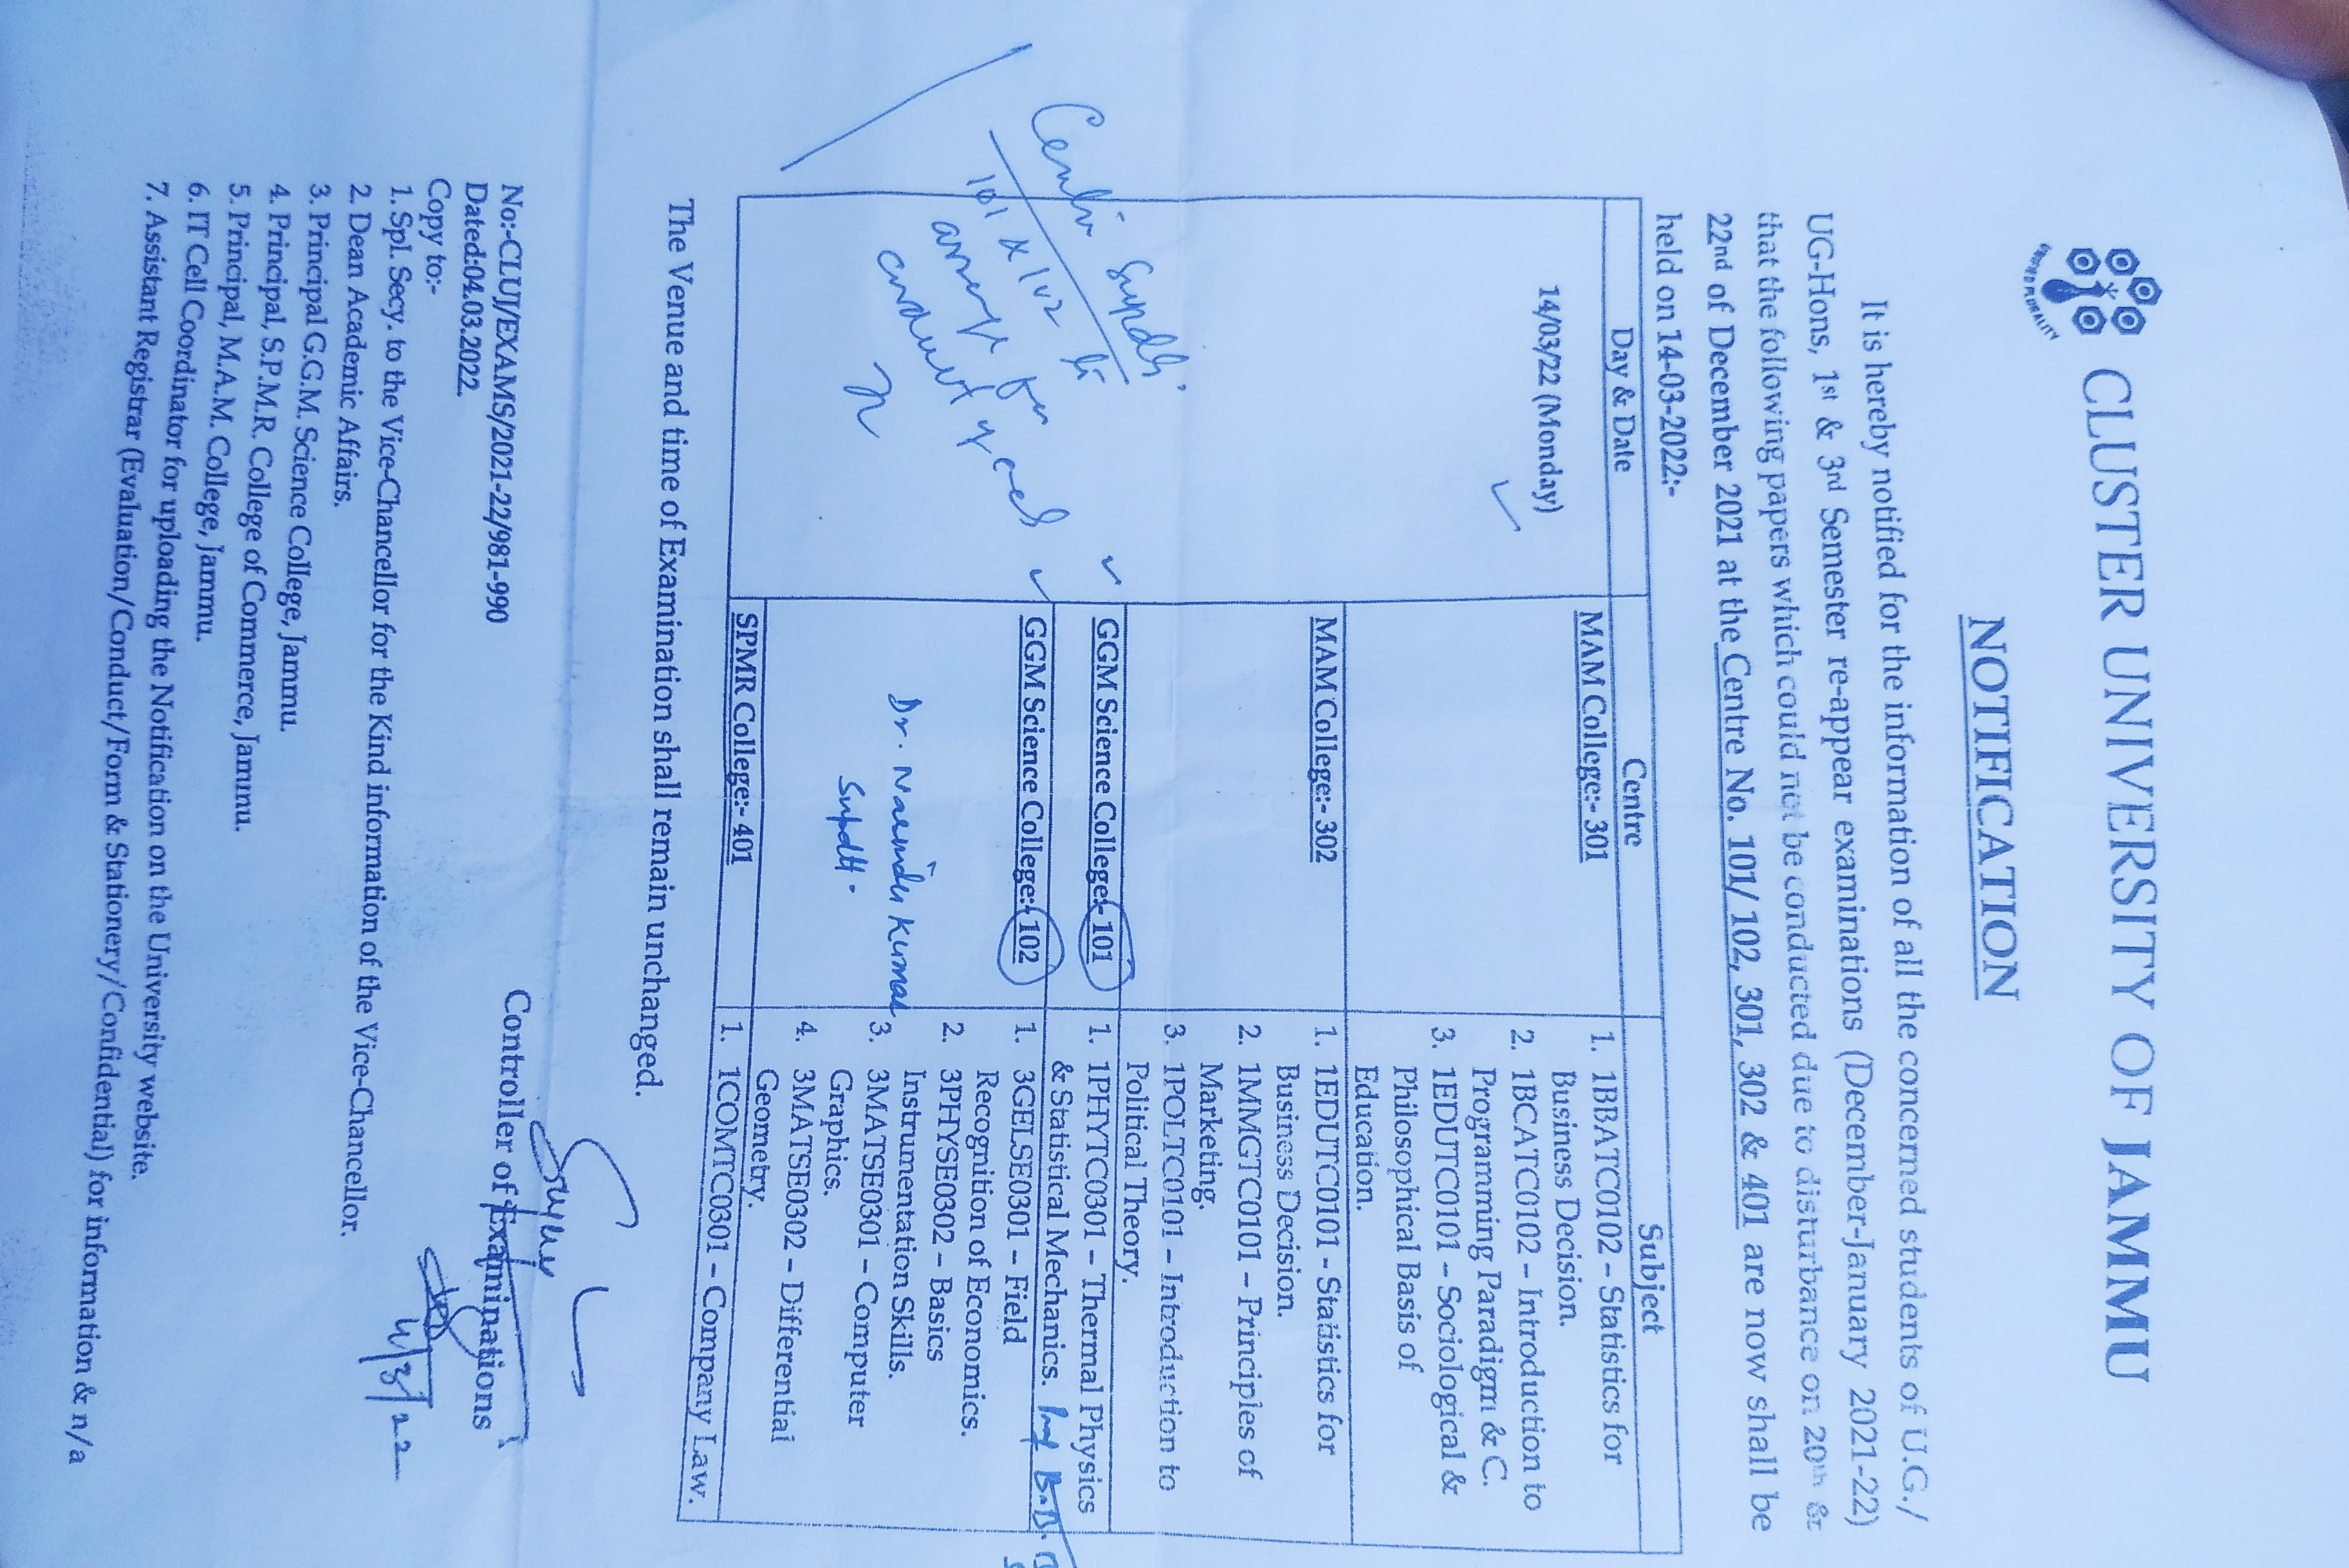 CLUSTER UNIVERSITY OF JAMMU
NOTIFICATION
It is hereby notified for the information of all the concerned students of U.G./
UG-Hons, 1st & 3rd Semester re-appear examinations (December-January 2021-22)
that the following papers which could not be conducted due to disturbance on 20th &
22nd of December 2021 at the Centre No. 101/102, 301, 302 & 401 are now shall be
held on 14-03-2022:-
Day & Date Centre Subject
14/03/22 (Monday) MAM College:- 301 1. 1BBATC0102 – Statistics for
Business Decision.
2. 1BCATC0102 – Introduction to
Programming Paradigm & C.
3. 1EDUTC0101 – Sociological &
Philosophical Basis of
Education.
MAM College:- 302 1. 1EDUTC0101 - Statistics for
Business Decision.
2. 1MMGTC0101 – Principles of
Marketing.
3. 1POLTC0101 – Introduction to
Political Theory.
GGM Science College:- 101 1. 1PHYTC0301 – Thermal Physics
& Statistical Mechanics.
GGM Science College:- 102 1. 3GELSE0301 – Field
Recognition of Economics.
2. 3PHYSE0302 – Basics
Instrumentation Skills.
3. 3MATSE0301 – Computer
Graphics.
4. 3MATSE0302 – Differential
Geometry.
Dr. Narinder Kumar
Supdtt.
SPMR College:- 401 1. 1COMTC0301 – Company Law.
Supdt.
101 & 102
The Venue and time of Examination shall remain unchanged.
Controller of Examinations
4/3/22
No:-CLUJ/EXAMS/2021-22/981-990
Dated:04.03.2022.
Copy to:-
1. Spl. Secy. to the Vice-Chancellor for the Kind information of the Vice-Chancellor.
2. Dean Academic Affairs.
3. Principal G.G.M. Science College, Jammu.
4. Principal, S.P.M.R. College of Commerce, Jammu.
5. Principal, M.A.M. College, Jammu.
6. IT Cell Coordinator for uploading the Notification on the University website.
7. Assistant Registrar (Evaluation/Conduct/Form & Stationery/Confidential) for information & n/a